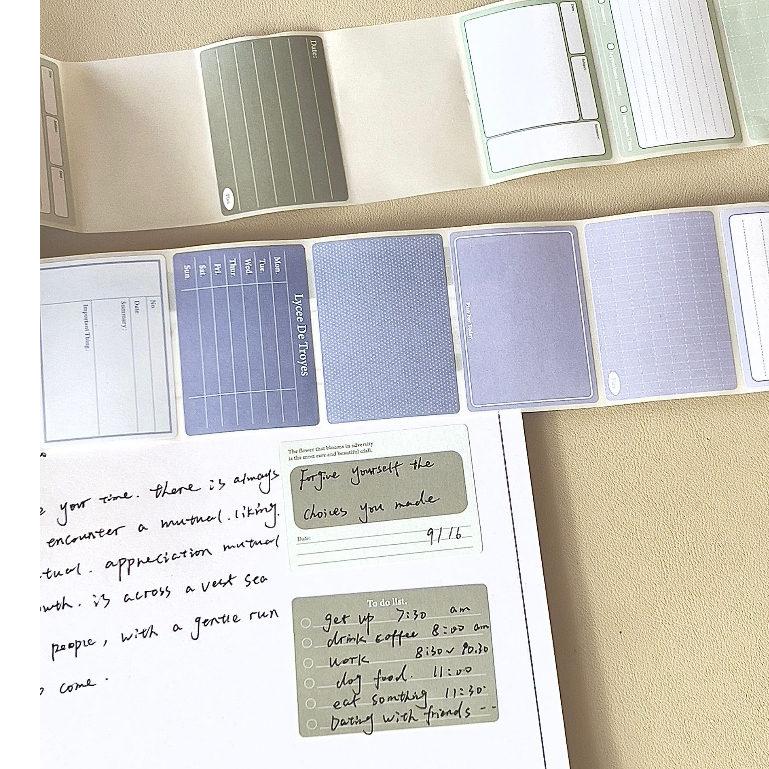 Date:
Mon.
Tue.
Wed.
Thur.
Fri.
Sat.
Sun.
Lycee De Troyes
No
Date
Summary:
Important Thing:
your time. there is always
encounter a mutual. liking.
appreciation mutual
is across a vast sea
people, with a gentle run
come.
The flower that blooms in adversity
is the most rare and beautiful of all.
Forgive yourself the
choices you made
Date:
9/16
To do list.
get up 7:30 am
drink coffee 8:00 am
work 8:30~10.30
dog food. 11:00
eat somthing 11:30
Dating with friends --